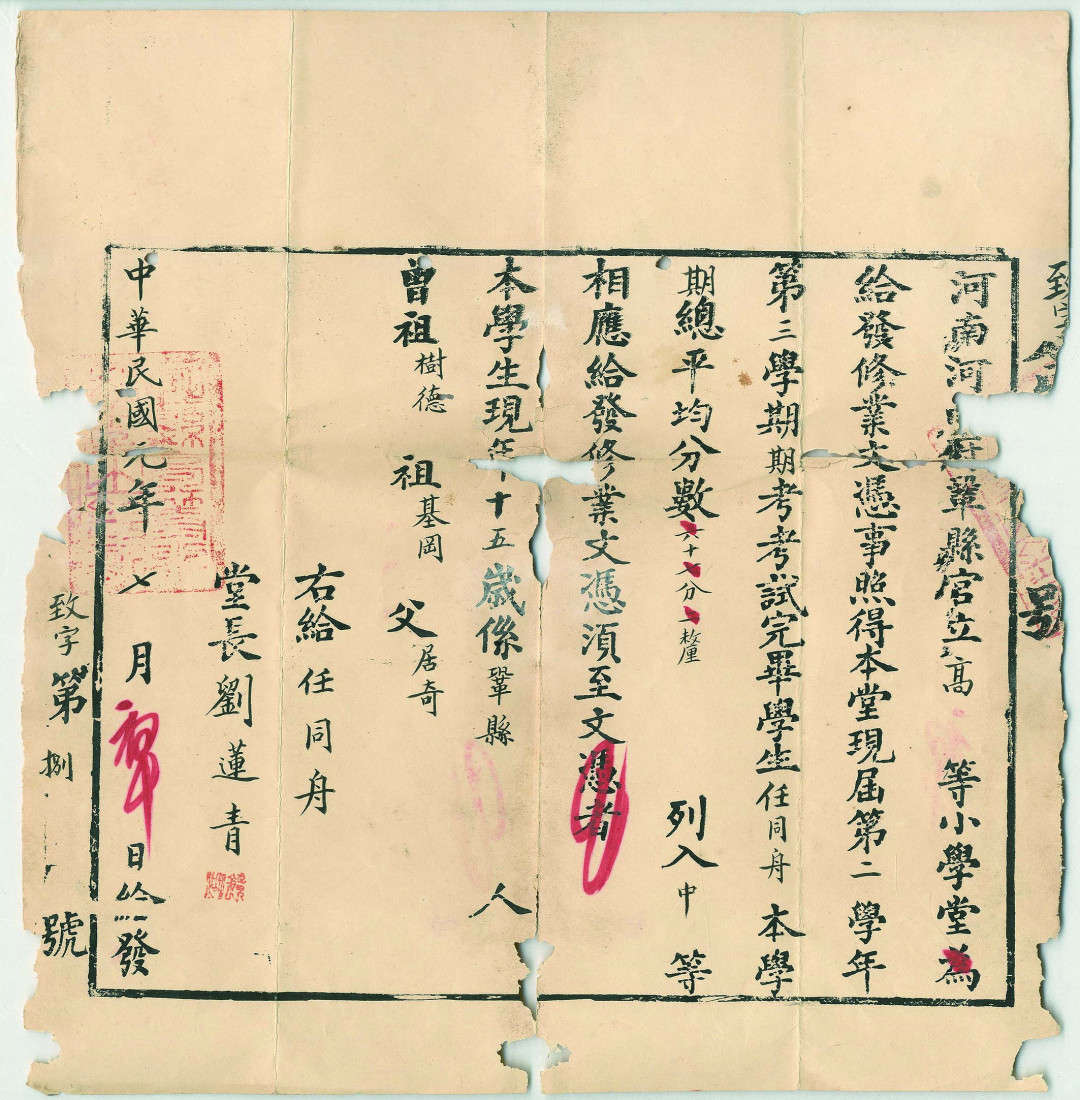 致字 號
河南河 府鞏縣官立高等小學堂為
給發修業文憑事照得本堂現届第二學年
第三學期期考考試完畢學生任同舟本學
期總平均分數六十七分二釐列入中等
相應給發修業文憑須至文憑者
本學生現年十五歲係鞏縣人
曾祖樹德祖基岡父居奇
右給任同舟
堂長劉蓮青
中華民國元年七月 日給發
致字第捌號